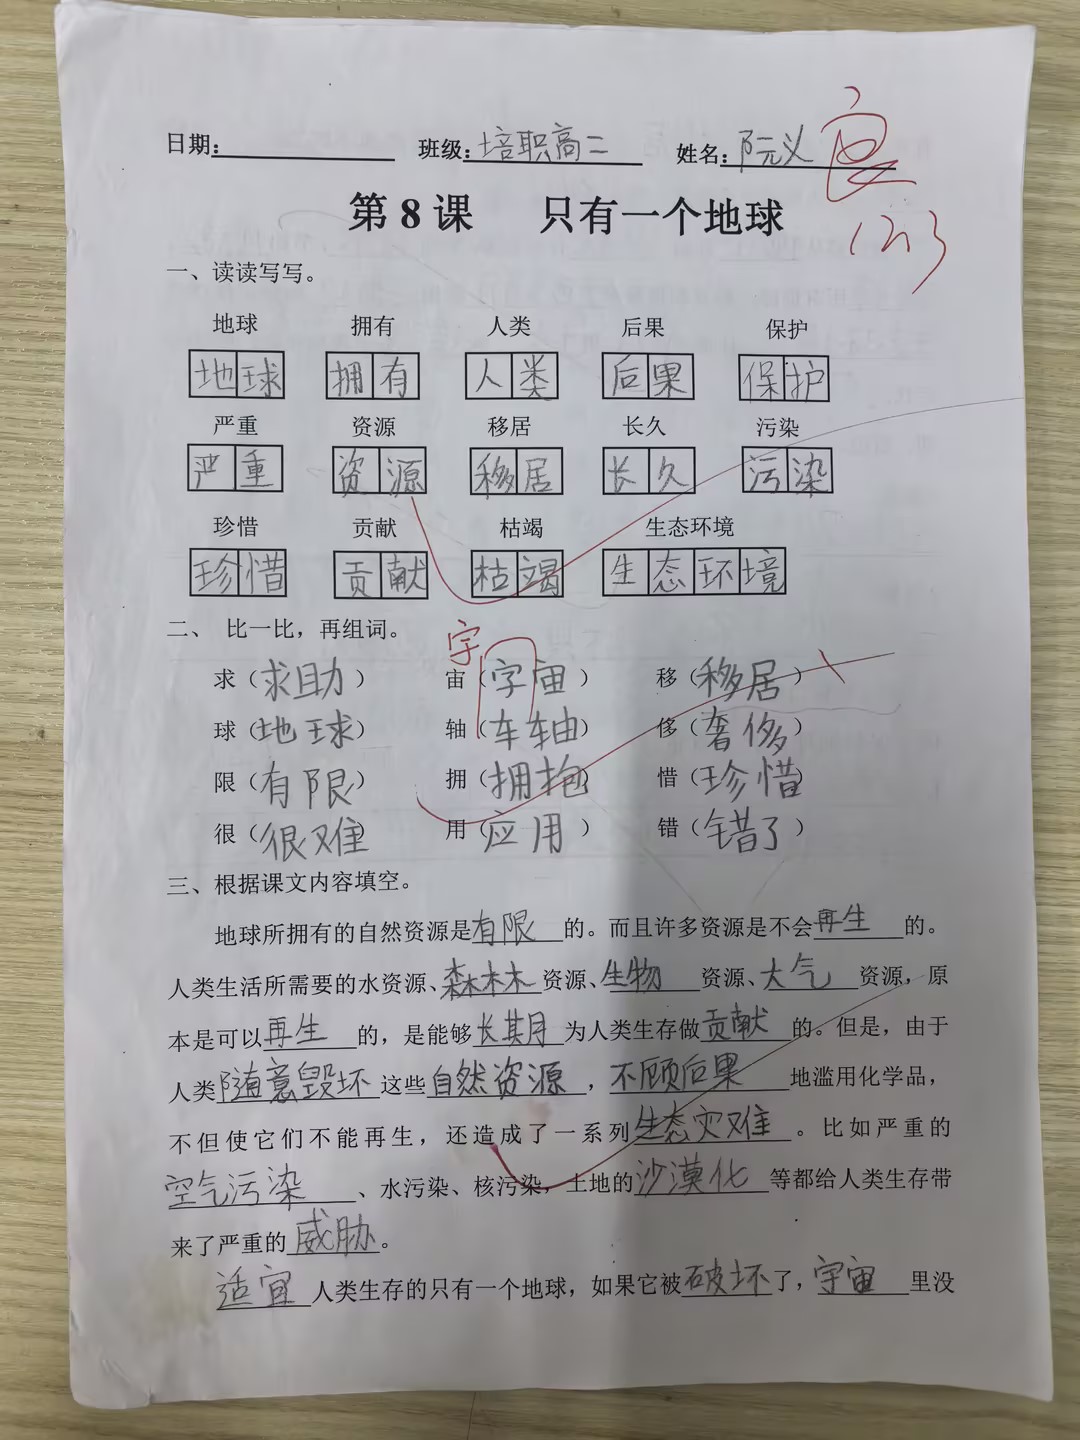 日期： 班级：培职高二 姓名：阮义 良
第8课 只有一个地球
一、读读写写。
地球 拥有 人类 后果 保护
地球 拥有 人类 后果 保护
严重 资源 移居 长久 污染
严重 资源 移居 长久 污染
珍惜 贡献 枯竭 生态环境
珍惜 贡献 枯竭 生态环境
二、 比一比，再组词。
宇
求（求助） 宙（字宙） 移（移居）
球（地球） 轴（车轴） 侈（奢侈）
限（有限） 拥（拥抱） 惜（珍惜）
很（很难） 用（应用） 错（错了）
三、根据课文内容填空。
地球所拥有的自然资源是有限的。而且许多资源是不会再生的。
人类生活所需要的水资源、森林资源、生物资源、大气资源，原
本是可以再生的，是能够长期为人类生存做贡献的。但是，由于
人类随意毁坏这些自然资源，不顾后果地滥用化学品，
不但使它们不能再生，还造成了一系列生态灾难。比如严重的
空气污染、水污染、核污染，土地的沙漠化等都给人类生存带
来了严重的威胁。
适宜人类生存的只有一个地球，如果它被破坏了，宇宙里没